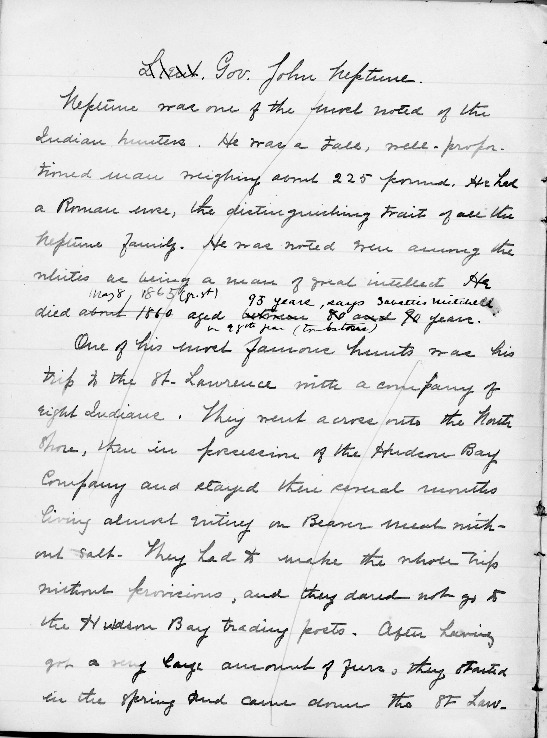 Lieut. Gov. John Neptune.
Neptune was one of the most noted of the
Indian hunters. He was a tall, well-propor-
tioned man weighing about 225 pound. He had
a Roman nose, the distinguishing trait of all the
Neptune family. He was noted even among the
whites as being a man of great intellect. He
May 8, 1865 93 years, says Sabattis Mitchell.
died about 1860 aged between 80 and 90 years.
in 98th year (tombstone)
One of his most famous hunts was his
trip to the St. Lawrence with a company of
eight Indians. They went across onto the North
Shore, then in possession of the Hudson Bay
Company and stayed there several months
living almost entirely on Beaver meat with-
out salt. They had to make the whole trip
without provicions, and they dared not go to
the Hudson Bay trading posts. After having
got a very large amount of furs, they started
in the spring and came down the St. Law-